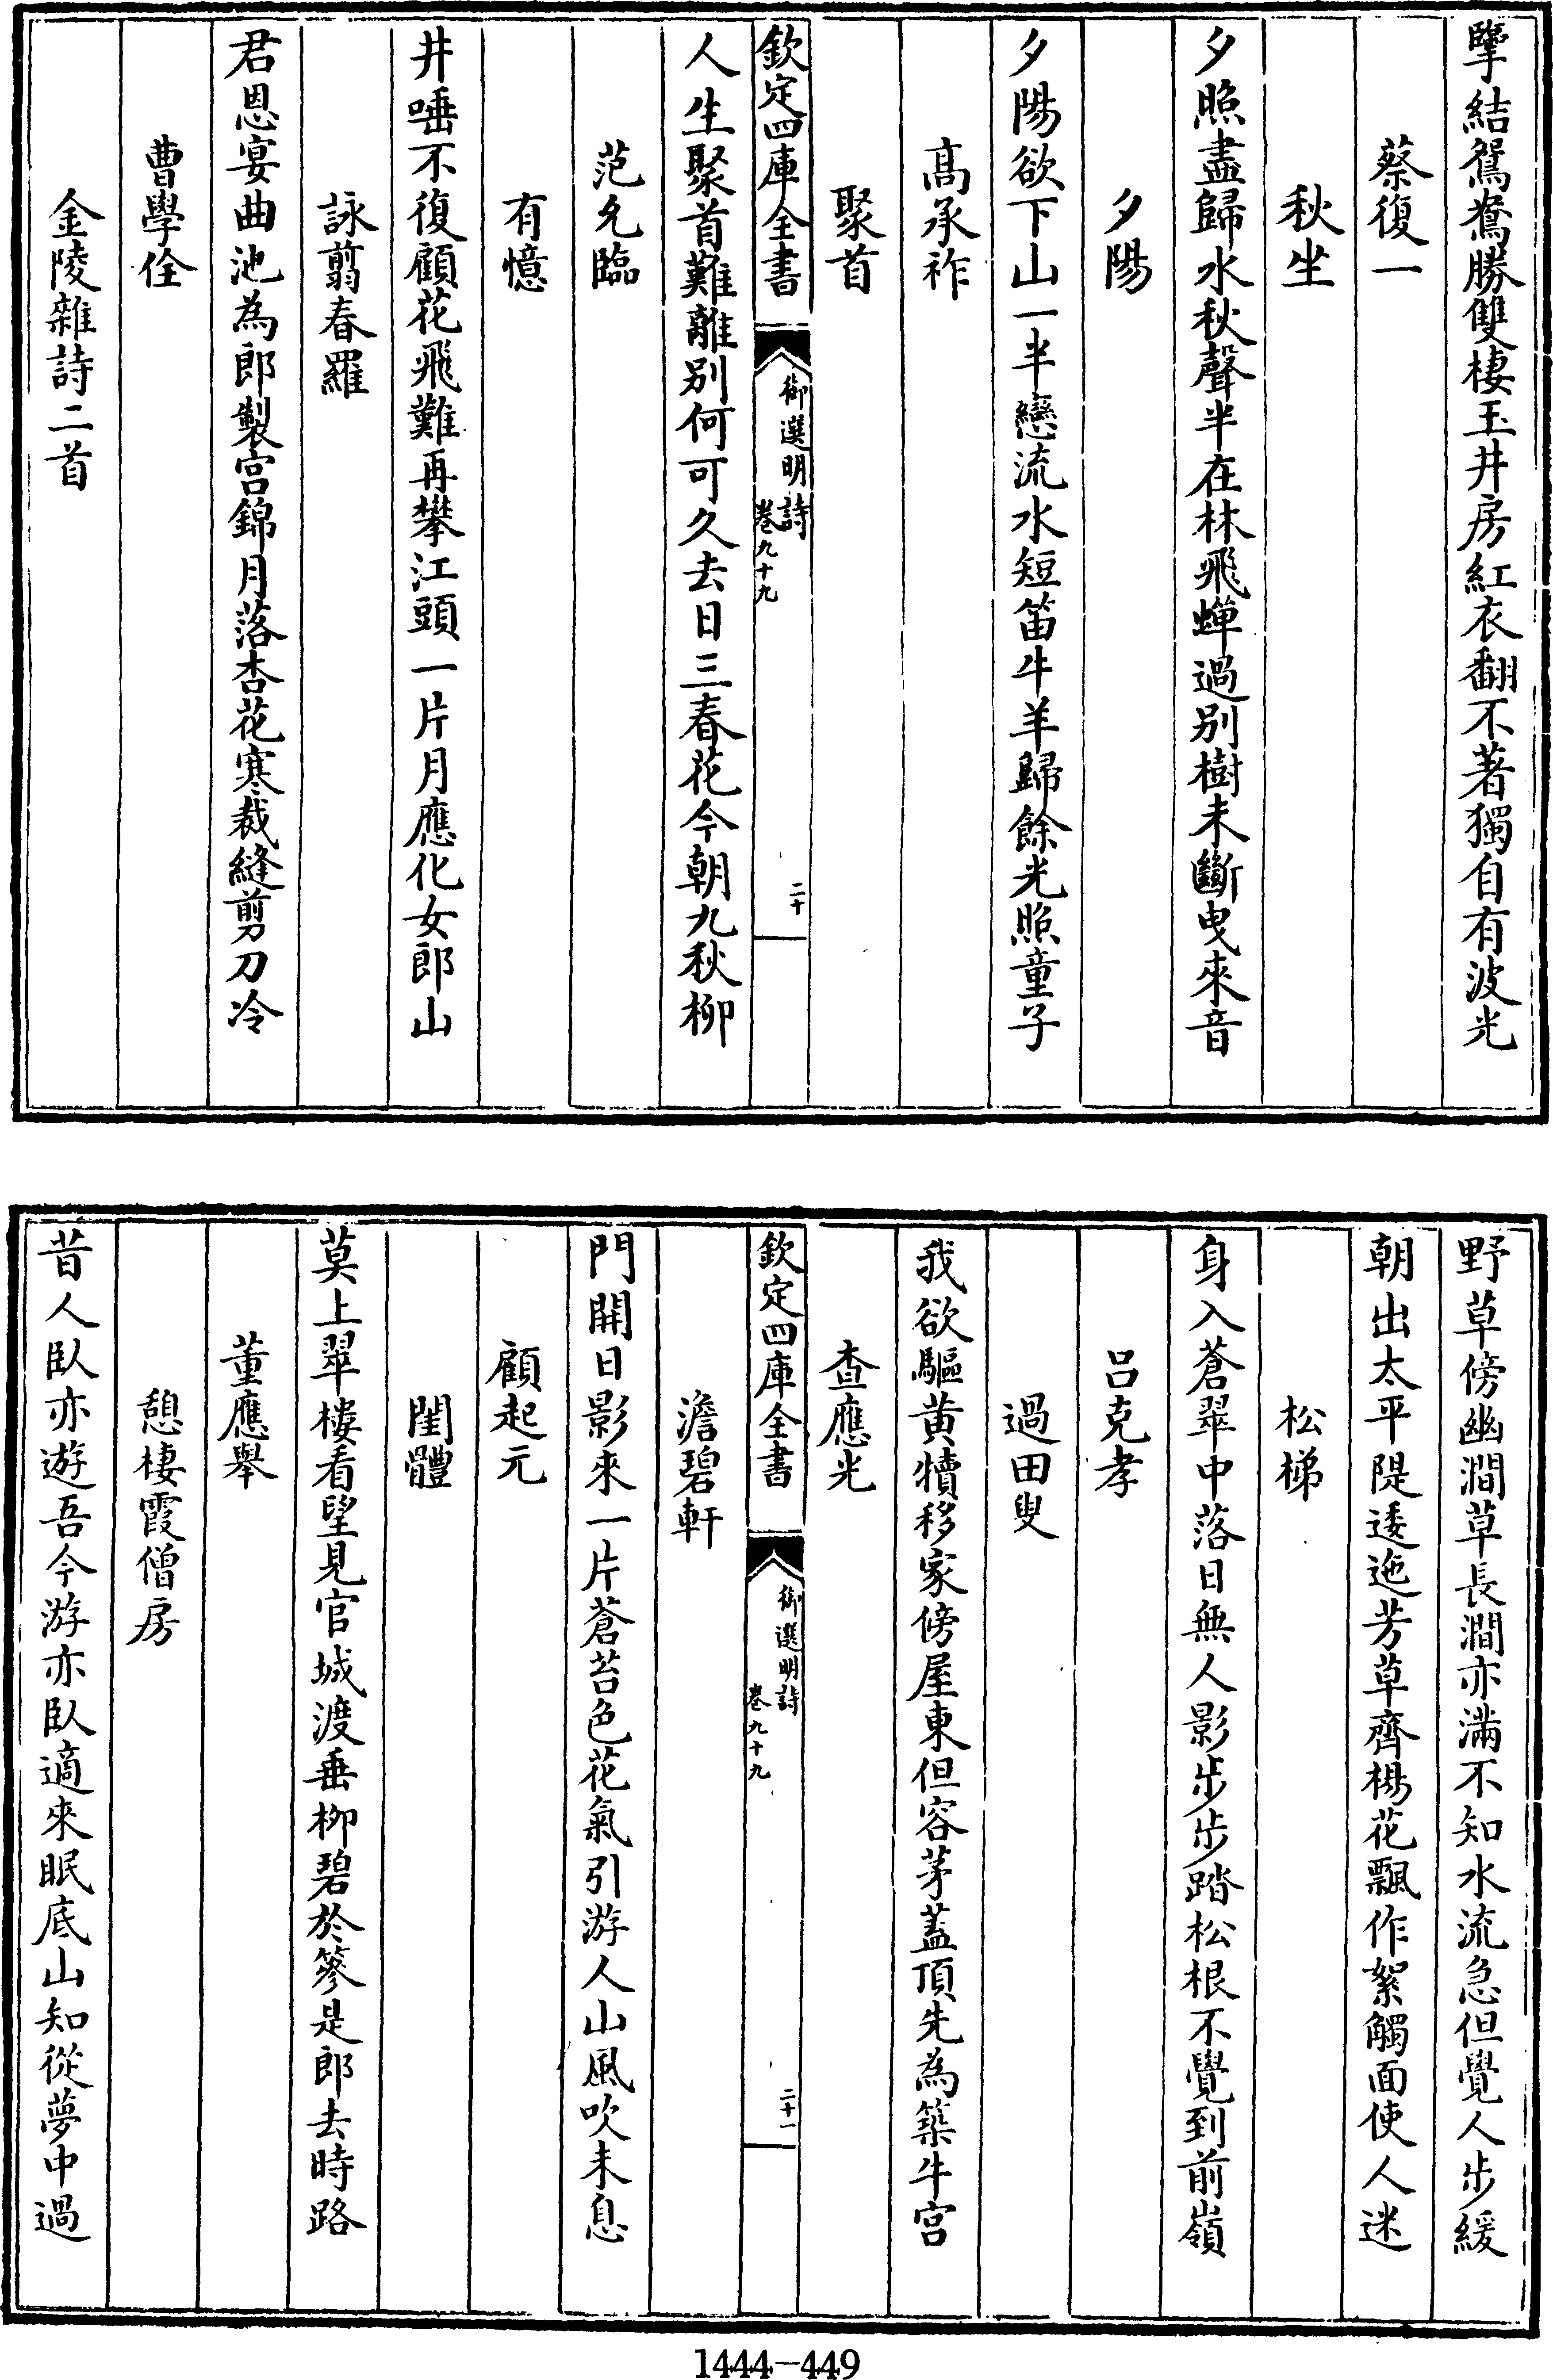 擘結鴛鴦勝雙棲玉井房紅衣翻不著獨自有波光
蔡復一
秋坐
夕照盡歸水秋聲半在林飛蟬過别樹未斷曳來音
夕陽
夕陽欲下山一半戀流水短笛牛羊歸餘光照童子
髙承祚
聚首
欽定四庫全書
御選明詩
卷九十九
二十
人生聚首難離别何可久去日三春花今朝九秋柳
范允臨
有憶
井唾不復顧花飛難再攀江頭一片月應化女郎山
詠翦春羅
君恩宴曲池為郎製宫錦月落杏花寒裁縫剪刀冷
曹學佺
金陵雜詩二首
野草傍幽澗草長澗亦滿不知水流急但覺人步緩
朝出太平隄逶迤芳草齊楊花飄作絮觸面使人迷
松梯
身入蒼翠中落日無人影步步踏松根不覺到前嶺
吕克孝
過田叟
我欲驅黄犢移家傍屋東但容茅蓋頂先為築牛宫
查應光
欽定四庫全書
御選明詩
卷九十九
二十一
澹碧軒
門開日影來一片蒼苔色花氣引游人山風吹未息
顧起元
閨體
莫上翠樓看望見官城渡垂柳碧於篸是郎去時路
董應舉
憩棲霞僧房
昔人臥亦遊吾今游亦臥適來眠底山知從夢中過
1444-449